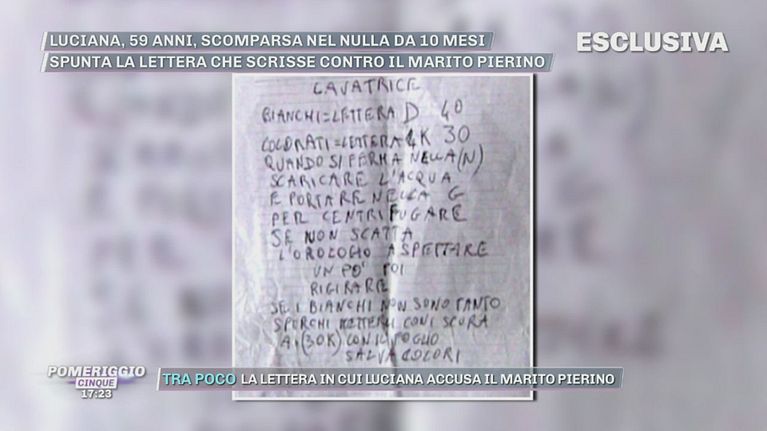 LUCIANA, 59 ANNI, SCOMPARSA NEL NULLA DA 10 MESI
SPUNTA LA LETTERA CHE SCRISSE CONTRO IL MARITO PIERINO
ESCLUSIVA
LAVATRICE
BIANCHI=LETTERA D 40
COLORATI=LETTERA K 30
QUANDO SI FERMA NELLA (N)
SCARICARE L'ACQUA
E PORTARE NELLA G
PER CENTRIFUGARE
SE NON SCATTA
L'OROLOGIO ASPETTARE
UN PO' POI
RIGIRARE
SE I BIANCHI NON SONO TANTO
SPORCHI METTERLI CON I SCURA
A (30K) CON IL FOGLIO
SALVA COLORI
POMERIGGIO
CINQUE
17:23
TRA POCO LA LETTERA IN CUI LUCIANA ACCUSA IL MARITO PIERINO